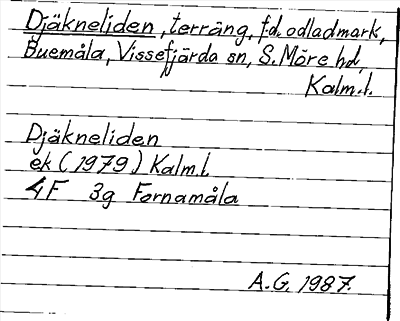 Djäkneliden, terräng, f.d. odladmark,
Buemåla, Vissefjärda sn, S. Möre hd,
Kalm.l.
Djäkneliden
ek (1979) Kalm.l.
4F 3g Fornamåla
A.G. 1987.